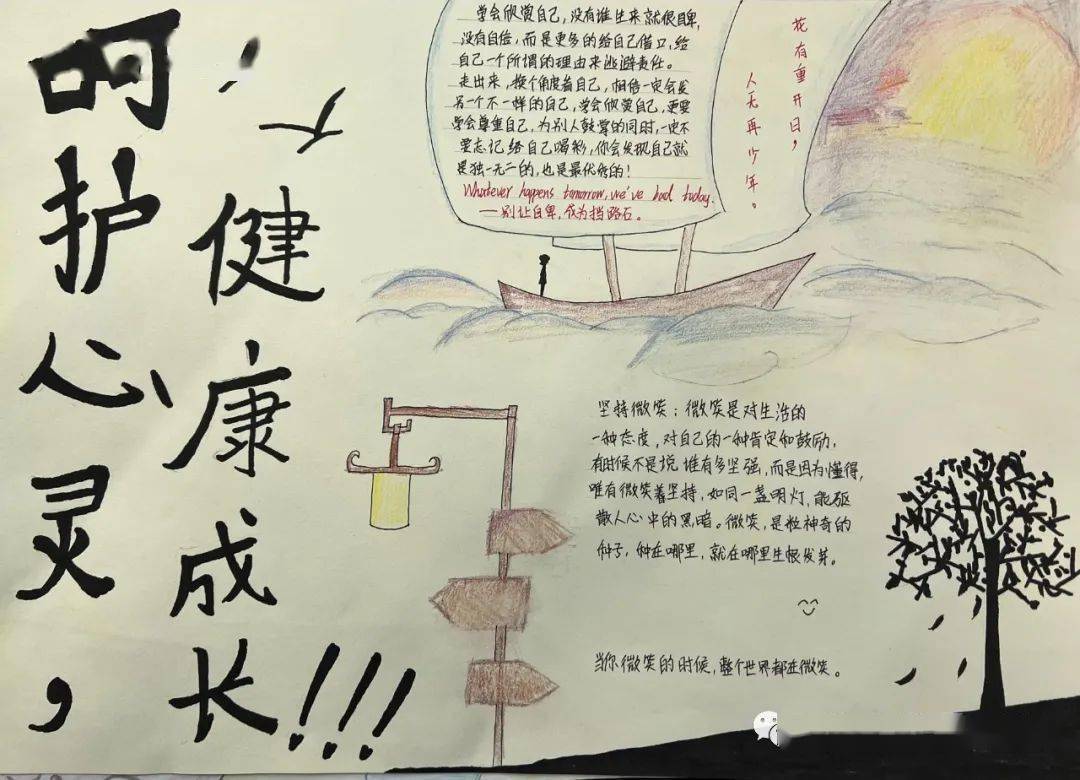 呵护心灵，
健康成长!!!
学会欣赏自己，没有谁生来就很自卑，
没有自信，而是更多的给自己借口，给
自己一个所谓的理由来逃避责任。
走出来，换个角度看自己，相信一定会是
另一个不一样的自己，学会欣赏自己，更要
学会尊重自己，为别人鼓掌的同时，一定不
要忘记给自己喝彩，你会发现自己就
是独一无二的，也是最优秀的！
Whatever happens tomorrow, we've had today.
——别让自卑，成为挡路石。
花有重开日，
人无再少年。
坚持微笑：微笑是对生活的
一种态度，对自己的一种肯定和鼓励，
有时候不是说谁有多坚强，而是因为懂得，
唯有微笑着坚持，如同一盏明灯，能驱
散人心中的黑暗。微笑，是粒神奇的
种子，种在哪里，就在哪里生根发芽。
当你微笑的时候，整个世界都在微笑。